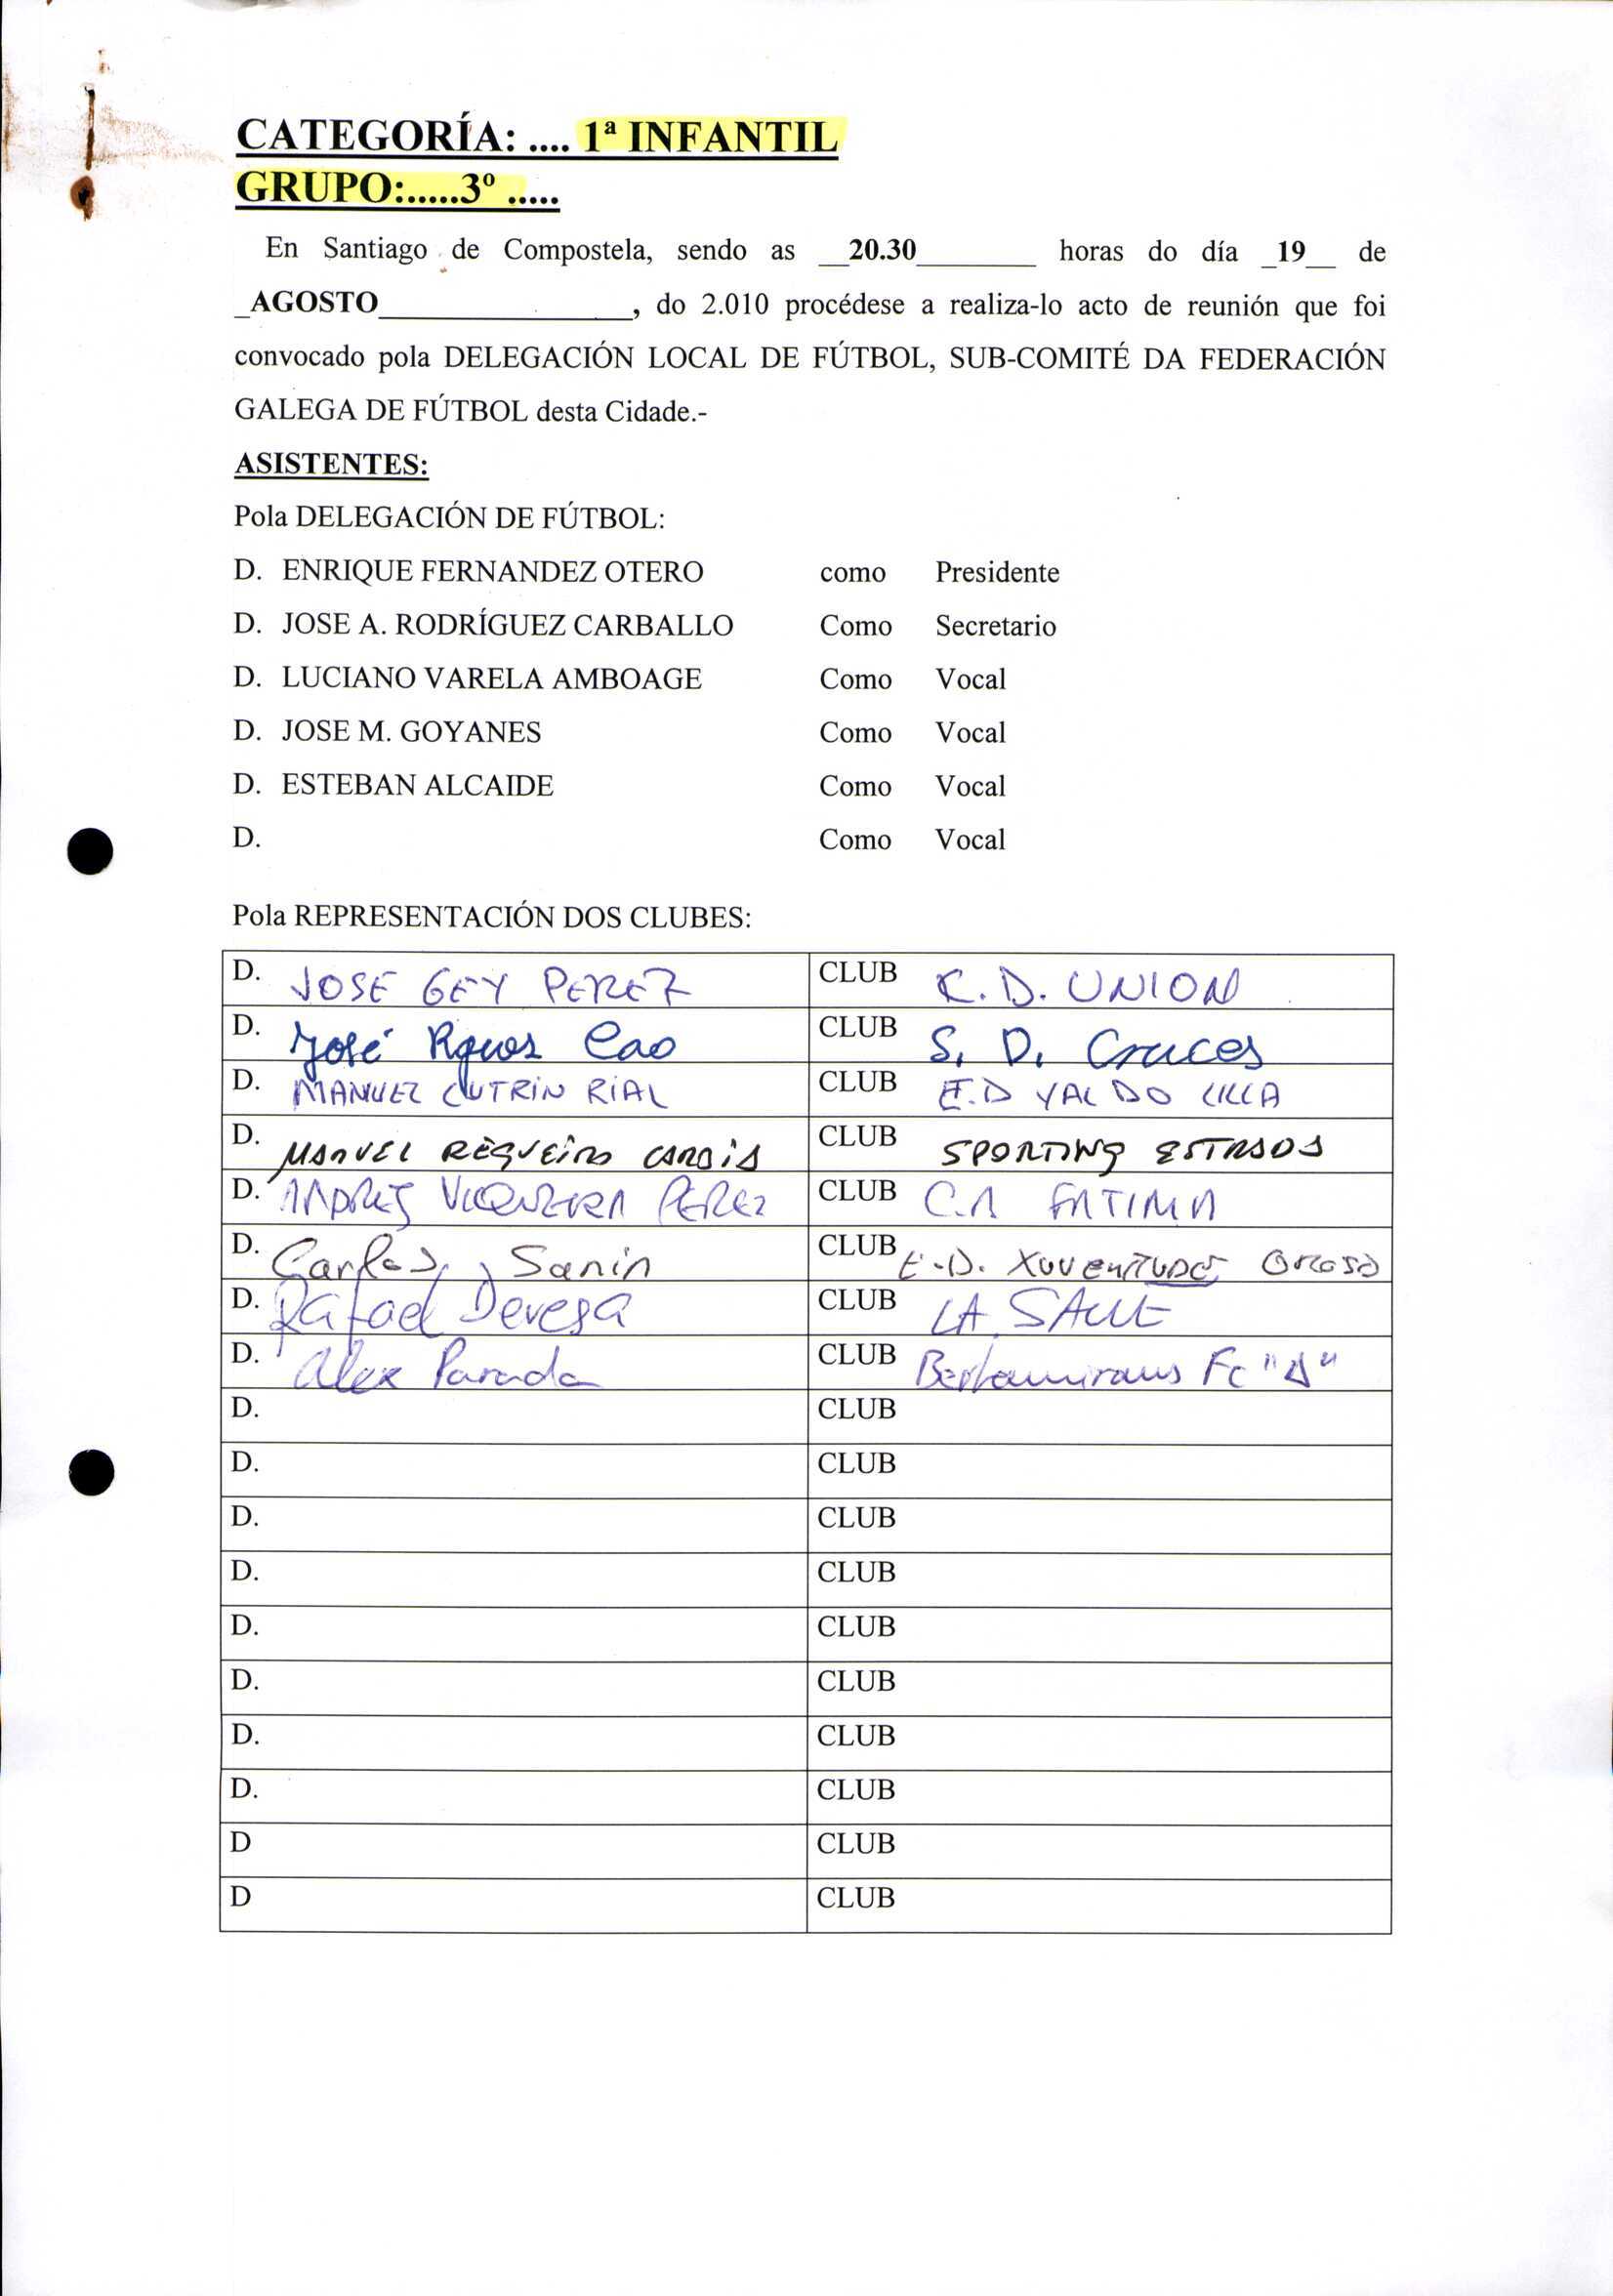 CATEGORÍA: .... 1ª INFANTIL
GRUPO:......3º .....
En Santiago de Compostela, sendo as __20.30________ horas do día _19__ de
_AGOSTO_________________, do 2.010 procédese a realiza-lo acto de reunión que foi
convocado pola DELEGACIÓN LOCAL DE FÚTBOL, SUB-COMITÉ DA FEDERACIÓN
GALEGA DE FÚTBOL desta Cidade.-
ASISTENTES:
Pola DELEGACIÓN DE FÚTBOL:
D. ENRIQUE FERNANDEZ OTERO como Presidente
D. JOSE A. RODRÍGUEZ CARBALLO Como Secretario
D. LUCIANO VARELA AMBOAGE Como Vocal
D. JOSE M. GOYANES Como Vocal
D. ESTEBAN ALCAIDE Como Vocal
D. Como Vocal
Pola REPRESENTACIÓN DOS CLUBES:
D. JOSE GEY PEREZ CLUB C.D. UNION
D. José Cao CLUB S. D. Cruces
D. MANUEL CUTRIN RIAL CLUB E.D VALDO
D. MANUEL REQUEIRO CLUB SPORTING ESTRADA
D. ANDRES VIQUEIRA PEREZ CLUB C.A FATIMA
D. Carlos Sanin CLUB E.D. XUVENTUDE OROSO
D. Rafael Devesa CLUB LA SALLE
D. Alex Parada CLUB Bertamirans Fc "A"
D. CLUB
D. CLUB
D. CLUB
D. CLUB
D. CLUB
D. CLUB
D. CLUB
D. CLUB
D CLUB
D CLUB